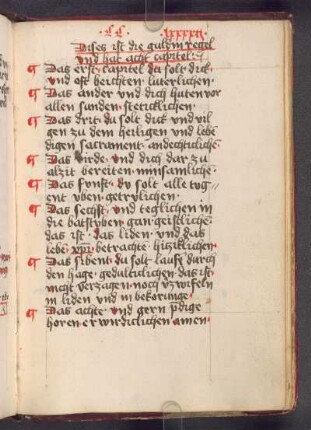 CC lxxxxii
Dises ist die guldin regel
vnd hat acht capitel
Das erst capitel du solt dick
vnd oft beichten luterlichen
Das ander vnd dich huten vor
allen sunden steticklichen
Das drit du solt dick vnd vil
gen zu dem heiligen vnd lebe
digen sacrament andechticliche
Das virde vnd dich dar zu
alzit bereiten minsamliche
Das funft du solt alle tog
ent vben getrvlichen
Das sechst vnd teglichen in
die batstuben gan geistliche
das ist das liden vnd das
lebe xpi betrachte hiziklichen
Das sibent du solt laufe durch
den hage gedulticlichen das ist
nicht verzagen noch vzwifeln
in liden vnd in bekorunge
Das achte vnd gern pdige
horen erwirdiclichen amen